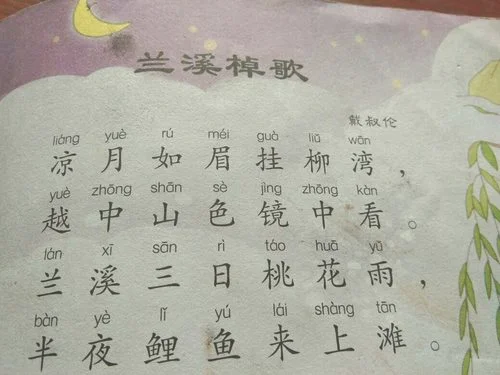 兰溪棹歌
戴叔伦
liáng yuè rú méi guà liǔ wān
凉月如眉挂柳湾，
yuè zhōng shān sè jìng zhōng kàn
越中山色镜中看。
lán xī sān rì táo huā yǔ
兰溪三日桃花雨，
bàn yè lǐ yú lái shàng tān
半夜鲤鱼来上滩。